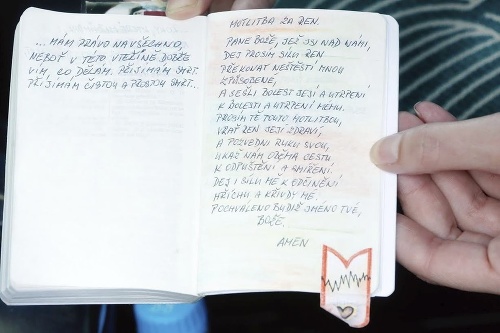 ... MÁM PRÁVO NA VŠECHNO,
NEBOŤ V TÉTO VTEŘINĚ DOBŘE
VÍM, CO DĚLÁM. PŘIJÍMÁM SMRT.
PŘIJÍMÁM ČISTOU A PROSTOU SMRT.
MOTLITBA ZA ŽEN.
PANE BOŽE, JEŽ JSI NAD NÁMI,
DEJ PROSÍM SÍLU ŽEN
PŘEKONAT NEŠTĚSTÍ MNOU
ZPŮSOBENÉ,
A SEŠLI BOLEST JEJÍ A UTRPENÍ
K BOLESTI A UTRPENÍ MÉMU.
PROSÍM TĚ TOUTO MOTLITBOU,
VRAŤ ŽEN JEJÍ ZDRAVÍ,
A POZVEDNI RUKU SVOU,
UKAŽ NÁM OBĚMA CESTU
K ODPUŠTĚNÍ A SMÍŘENÍ.
DEJ I SÍLU MĚ K ODČINĚNÍ
HŘÍCHU A KŘIVDY MÉ.
POCHVÁLENO BUDIŽ JMÉNO TVÉ,
BOŽE.
AMEN